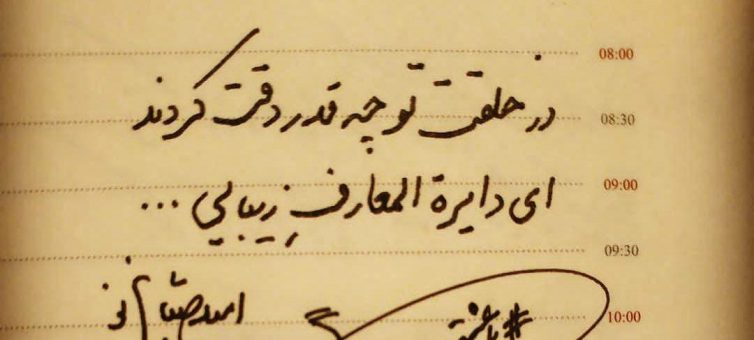 08:00
در خلقت تو چه قدر دقت کردند
08:30
ای دایرة المعارفِ زیبایی ...
09:00
09:30
10:00